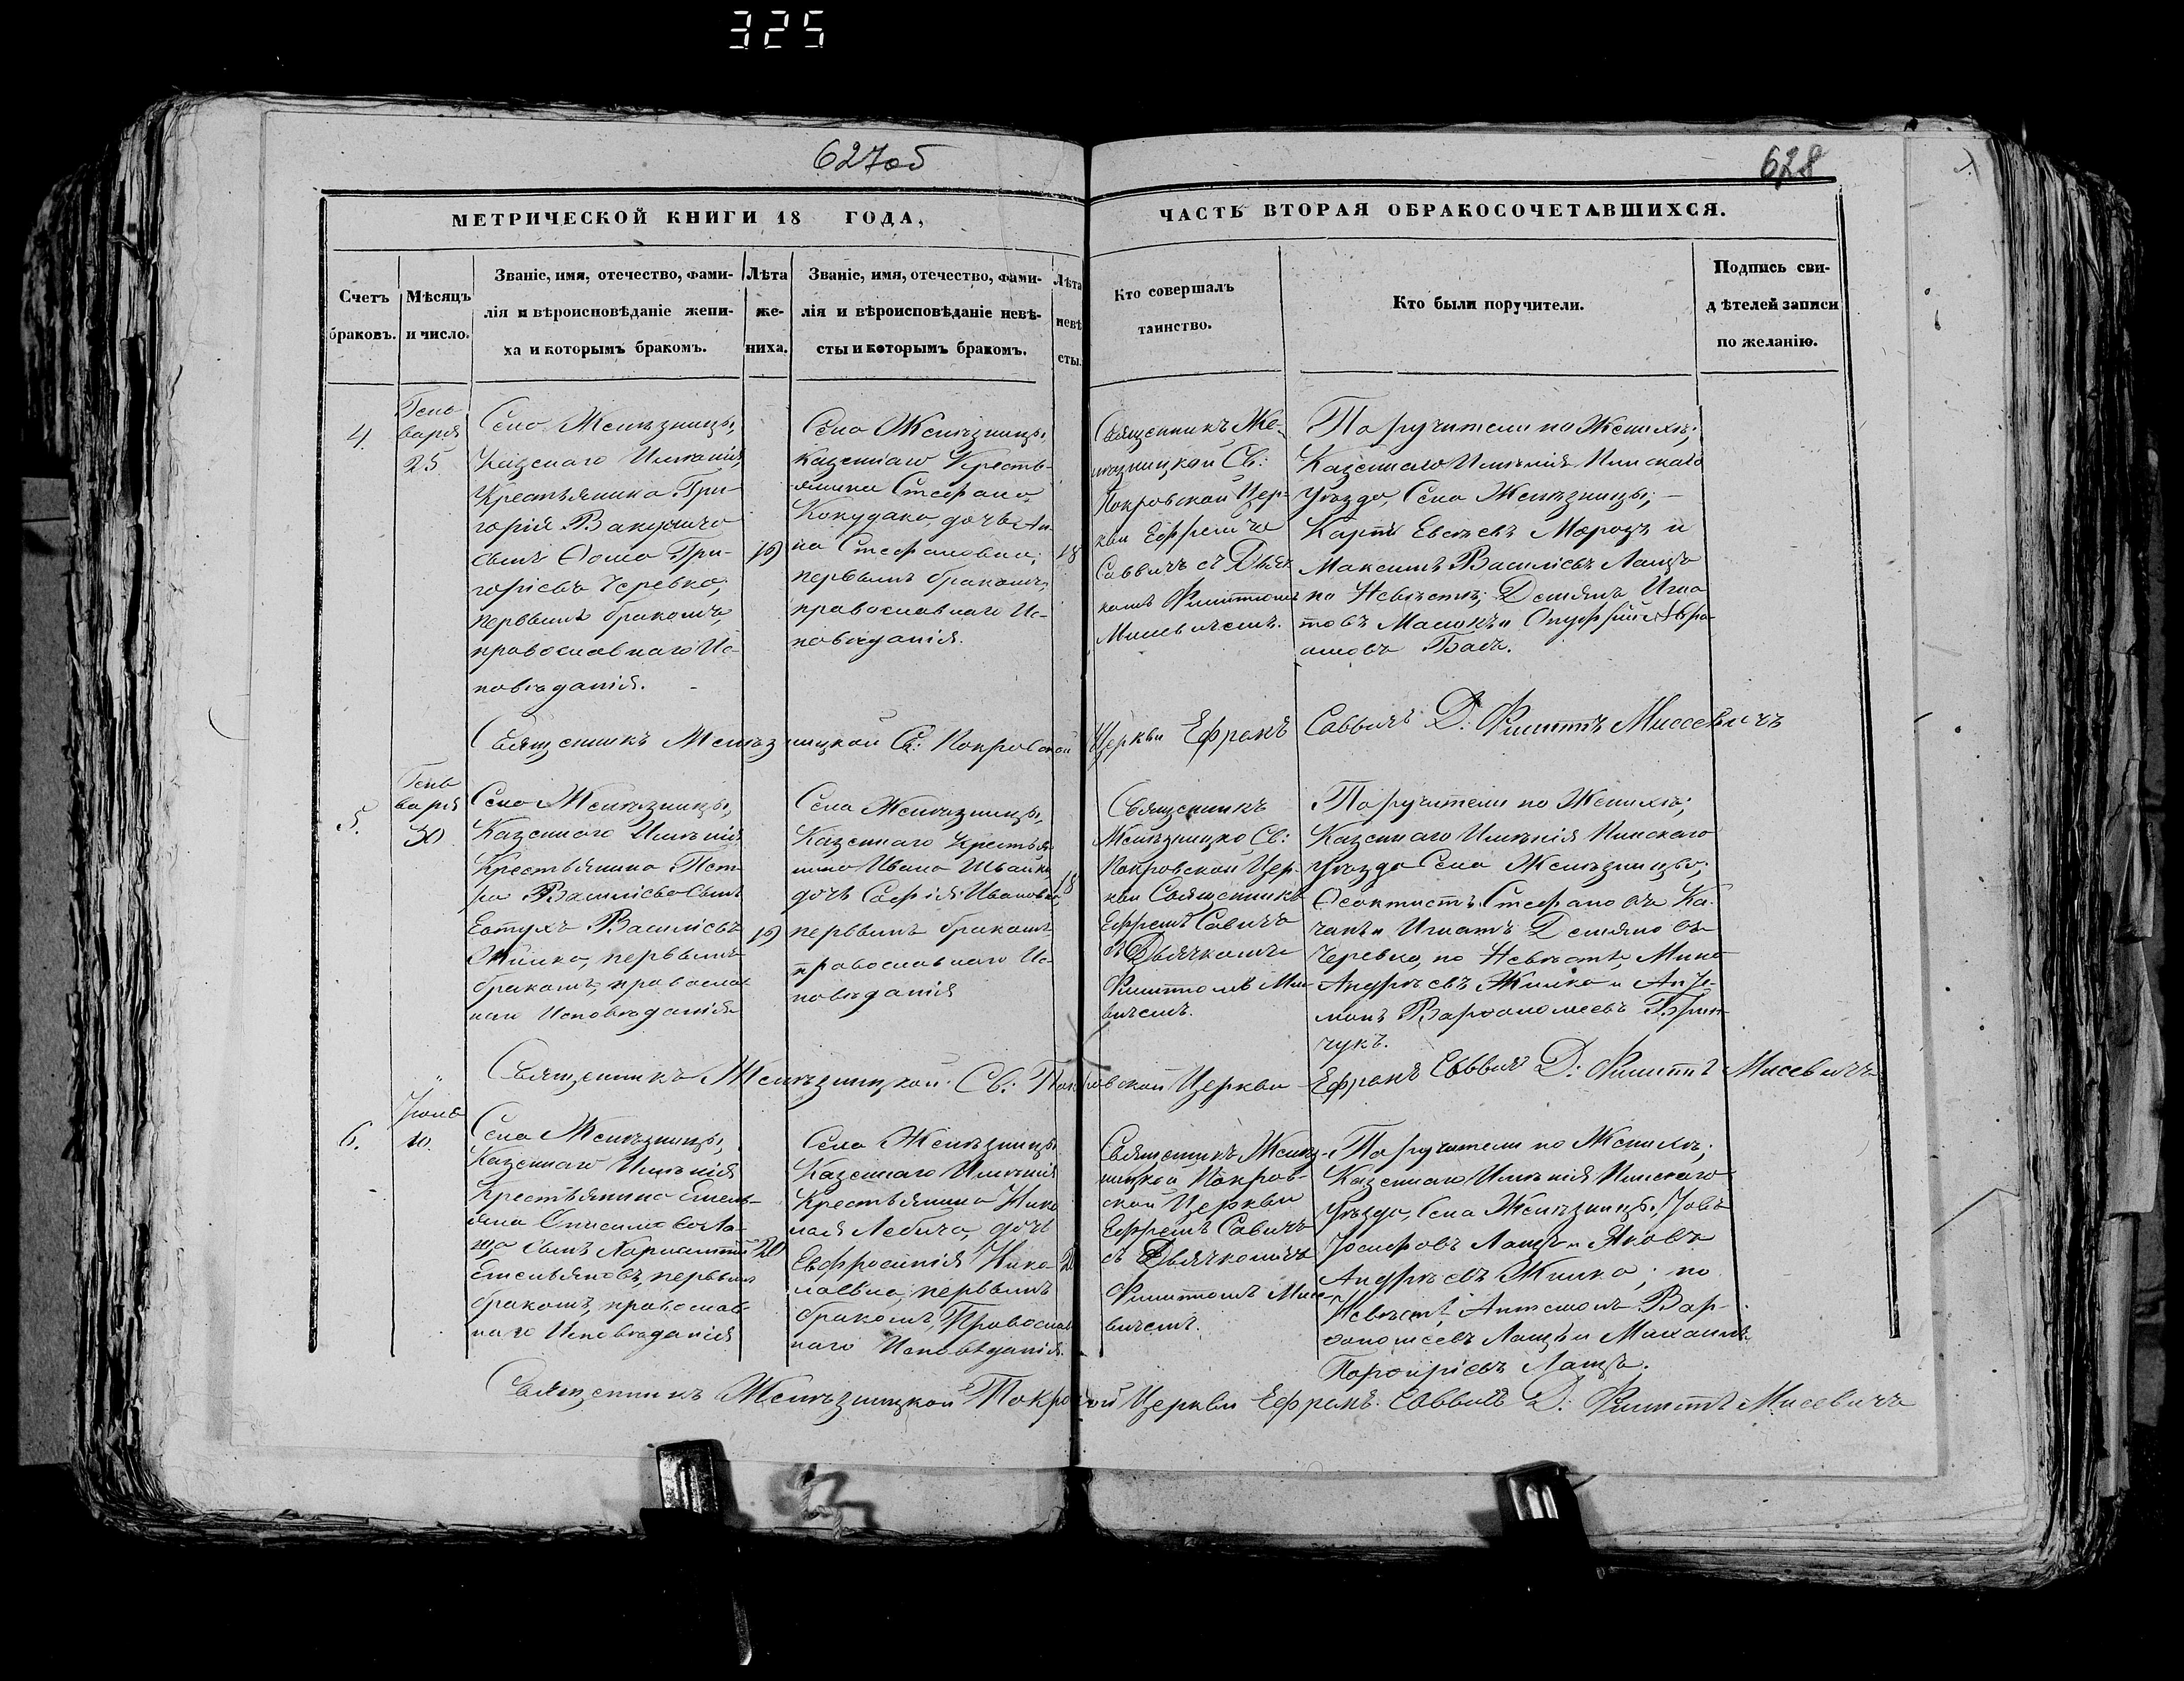 325
627об
628
МЕТРИЧЕСКОЙ КНИГИ 18 ГОДА,
ЧАСТЬ ВТОРАЯ ОБРАКОСОЧЕТАВШИХСЯ.
Счетъ
браковъ.
Мѣсяцъ
и число.
Званіе, имя, отечество, фами-
лія и вѣроисповѣданіе жени-
ха и которымъ бракомъ.
Лѣта
же-
ниха.
Званіе, имя, отечество, фами-
лія и вѣроисповѣданіе невѣ-
сты и которымъ бракомъ.
Лѣта
невѣ
сты.
Кто совершалъ
таинство.
Кто были поручители.
Подпись сви-
дѣтелей записи
по желанію.
4.
Генв
варя
25
Села Желѣзницы,
Казеннаго Имѣнія,
Крестьянина Гри-
горія
сынъ Ѳома Гри-
горіевъ Черевко,
первымъ бракомъ,
православнаго Ис-
повѣданія.
19
Села Желѣзницы,
Казеннаго Кресть-
янина Стефана
дочь Ан-
на Стефановна,
первымъ бракомъ,
православнаго Ис-
повѣданія.
18
Священникъ Же-
лѣзницкой Св:
Покровской Цер-
кви Ефремъ
Саввичъ съ Дьяч
комъ Филиппомъ
Мисевичемъ.
Поручители по Женихѣ;
Казеннаго Имѣнія Пинскаго
Уѣзда, Села Желѣзницы;
Карпъ Евсѣевъ Морозъ и
Максимъ Василіевъ Лащъ
по Невѣстѣ; Демянъ Игна
товъ и Онуфрій Авра
амовъ Бабъ.
Священникъ Желѣзницкой Св: Покровской Церкви Ефремъ Саввичъ Д: Филиппъ Мисевичъ
5.
Генв
варя
30
Села Желѣзницы,
Казеннаго Имѣнія
Крестьянина
Василіева Сынъ
Евтухъ Василіевъ
Жилко, первымъ
бракомъ, православ
наго Исповѣданія
19
Села Желѣзницы,
Казеннаго Крестья
нина Ивана Швайки
дочь Софія Ивановна,
первымъ бракомъ
православнаго Ис-
повѣданія
18
Священникъ
Желѣзницко Св:
Покровской Цер-
кви Священникъ
Ефремъ Савичъ
съ Дьячкомъ
Филиппомъ Мис
вичемъ.
Поручители по Женихѣ;
Казеннаго Имѣнія Пинскаго
Уѣзда Села Желѣзницы;
Ѳеоктистъ Стефановъ Ка-
чанъ и Игнатъ Демяновъ
Черевко, по Невѣстѣ,
Андрѣевъ Жилко и Арте-
монъ Варѳоломеевъ Грин
чукъ.
Священникъ Желѣзницкой Св: Покровской Церкви Ефремъ Саввичъ Д: Филиппъ Мисевичъ
6.
Іюля
10.
Села Желѣзницы,
Казеннаго Имѣнія
Крестьянина Емель-
яна Онисимова Ла-
ща сынъ Харлампій
Емельяновъ, первымъ
бракомъ, православ
наго Исповѣданія
20
Села Желѣзницы
Казеннаго Имѣнія
Крестьянина Нико
лая дочь
Евфросинія Нико
лаевна, первымъ
бракомъ, Православ
наго Исповѣданія.
Священникъ Желѣз-
ницкой Покров-
ской Церкви
Ефремъ Савичъ
съ Дьячкомъ
Филиппомъ Мисе
вичемъ.
Поручители по Женихѣ;
Казеннаго Имѣнія Пинскаго
Уѣзда, Села Желѣзницы, Іовъ
Іосифовъ Лащъ и Яковъ
Андрѣевъ Жилко; по
Невѣстѣ, Артемонъ Вар-
ѳоломеевъ Лащъ и Михаилъ
Порфиріевъ Лащъ.
Священникъ Желѣзницкой Покровской Церкви Ефремъ Саввичъ Д: Филиппъ Мисевичъ